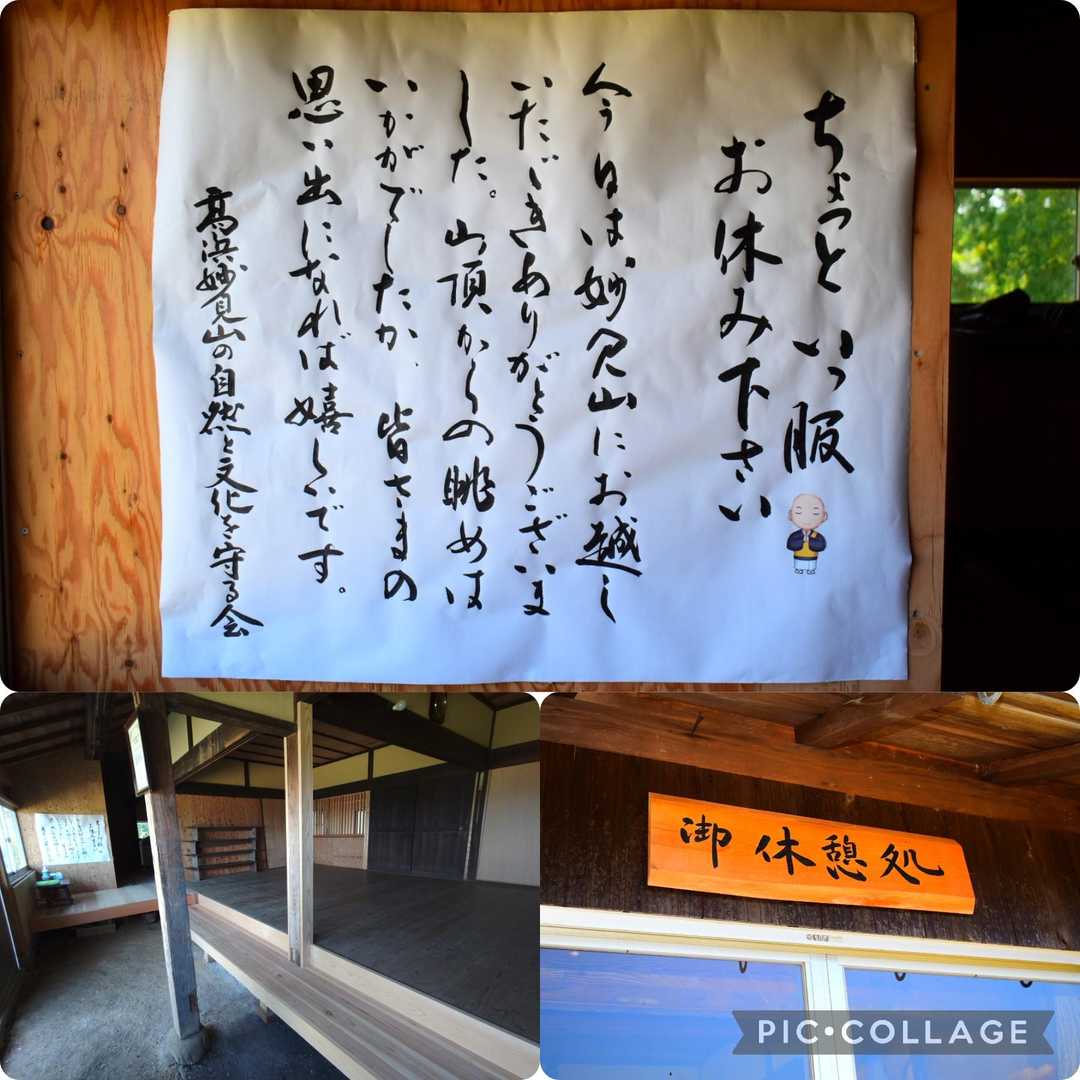 ちょっといっ服
お休み下さい
今日は妙見山にお越し
いただきありがとうございま
した。山頂からの眺めは
いかがでしたか、皆さまの
思い出になれば嬉しいです。
高浜妙見山の自然と文化を守る会
御休憩処
PIC•COLLAGE